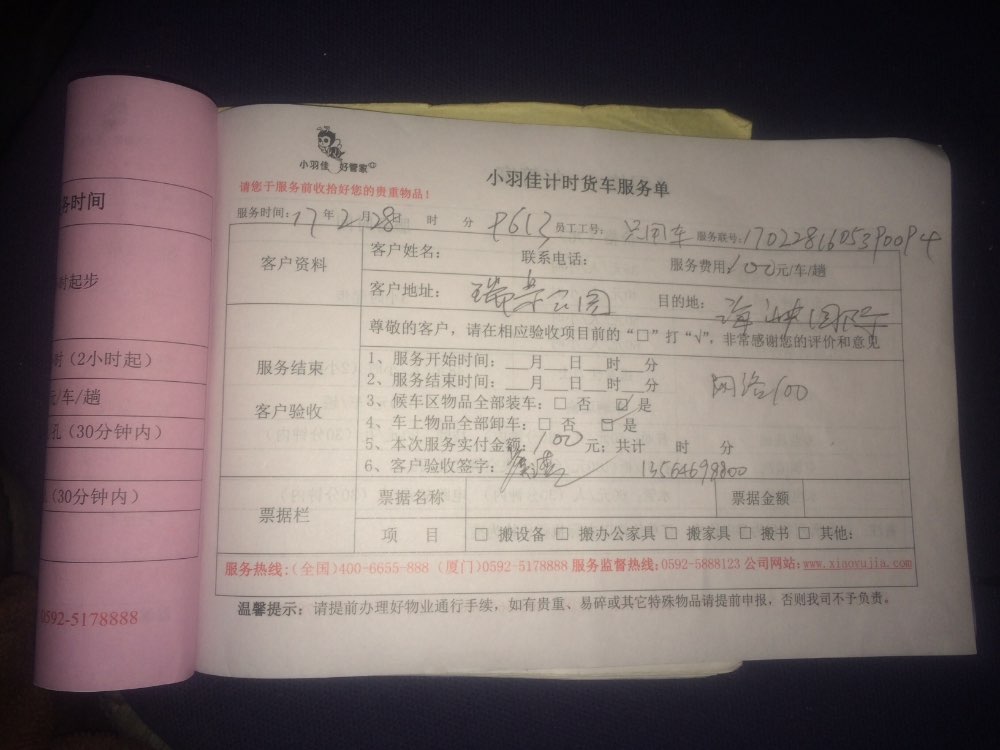 务时间
时起步
时（2小时起）
元/车/趟
孔（30分钟内）
（30分钟内）
0592-5178888
小羽佳 好管家
小羽佳计时货车服务单
请您于服务前收拾好您的贵重物品！
服务时间：17年2月28日 时 分 员工工号： 只用车 服务联号：1702281605390094
客户资料
客户姓名： 联系电话： 服务费用：100元/车/趟
客户地址：瑞景公园 目的地：海峡国际
服务结束
客户验收
尊敬的客户，请在相应验收项目前的“□”打“√”，非常感谢您的评价和意见
1、服务开始时间：___月___日___时___分
2、服务结束时间：___月___日___时___分
网络100
3、候车区物品全部装车：□ 否 ☑ 是
4、车上物品全部卸车：□ 否 ☑ 是
5、本次服务实付金额：100元；共计 时 分
6、客户验收签字： 13564698800
票据栏
票据名称 票据金额
项 目 □ 搬设备 □ 搬办公家具 □ 搬家具 □ 搬书 □ 其他：
服务热线：（全国）400-6655-888（厦门）0592-5178888 服务监督热线：0592-5888123 公司网站：www.xiaoyujia.com
温馨提示：请提前办理好物业通行手续，如有贵重、易碎或其它特殊物品请提前申报，否则我司不予负责。